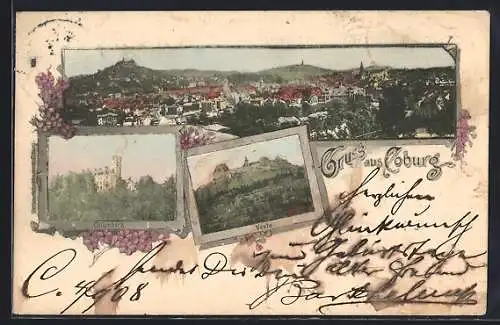 Gruss aus Coburg
Callenberg
Veste
Herzlichen
Glückwunsch
zum Geburtstage
sendet Dir Dein alter Freund
C. 4/9 08